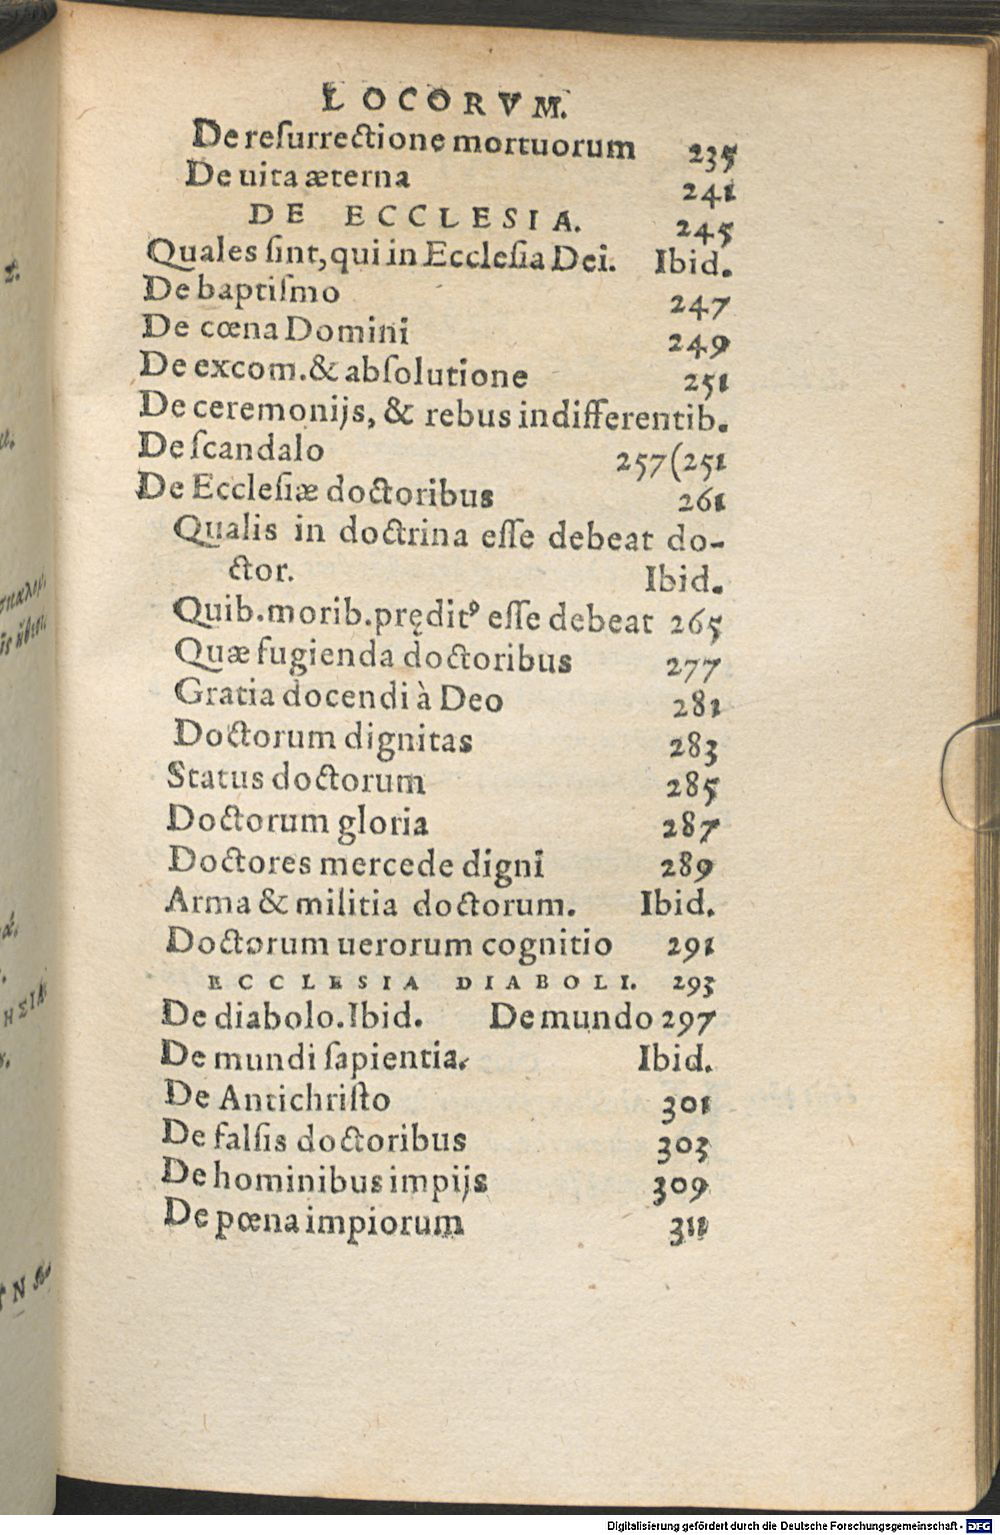 LOCORVM.
De reſurrectione mortuorum 235
De uita æterna 241
DE ECCLESIA. 245
Quales ſint, qui in Eccleſia Dei. Ibid.
De baptiſmo 247
De cœna Domini 249
De excom. & abſolutione 251
De ceremonijs, & rebus indifferentib.
De ſcandalo 257 (251
De Eccleſiæ doctoribus 261
Qualis in doctrina eſſe debeat do-
ctor. Ibid.
Quib. morib. pręditꝰ eſſe debeat 265
Quæ fugienda doctoribus 277
Gratia docendi à Deo 281
Doctorum dignitas 283
Status doctorum 285
Doctorum gloria 287
Doctores mercede digni 289
Arma & militia doctorum. Ibid.
Doctorum uerorum cognitio 291
ECCLESIA DIABOLI. 293
De diabolo. Ibid. De mundo 297
De mundi ſapientia. Ibid.
De Antichriſto 301
De falſis doctoribus 303
De hominibus impijs 309
De pœna impiorum 311
Digitalisierung gefördert durch die Deutsche Forschungsgemeinschaft - DFG